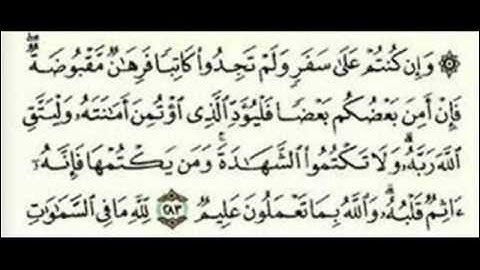 ۞ وَإِن كُنتُمْ عَلَىٰ سَفَرٍ وَلَمْ تَجِدُوا۟ كَاتِبًا فَرِهَٰنٌ مَّقْبُوضَةٌ ۖ
فَإِنْ أَمِنَ بَعْضُكُم بَعْضًا فَلْيُؤَدِّ ٱلَّذِى ٱؤْتُمِنَ أَمَٰنَتَهُۥ وَلْيَتَّقِ
ٱللَّهَ رَبَّهُۥ ۗ وَلَا تَكْتُمُوا۟ ٱلشَّهَٰدَةَ ۚ وَمَن يَكْتُمْهَا فَإِنَّهُۥٓ
ءَاثِمٌ قَلْبُهُۥ ۗ وَٱللَّهُ بِمَا تَعْمَلُونَ عَلِيمٌ ٢٨٣ لِّلَّهِ مَا فِى ٱلسَّمَٰوَٰتِ